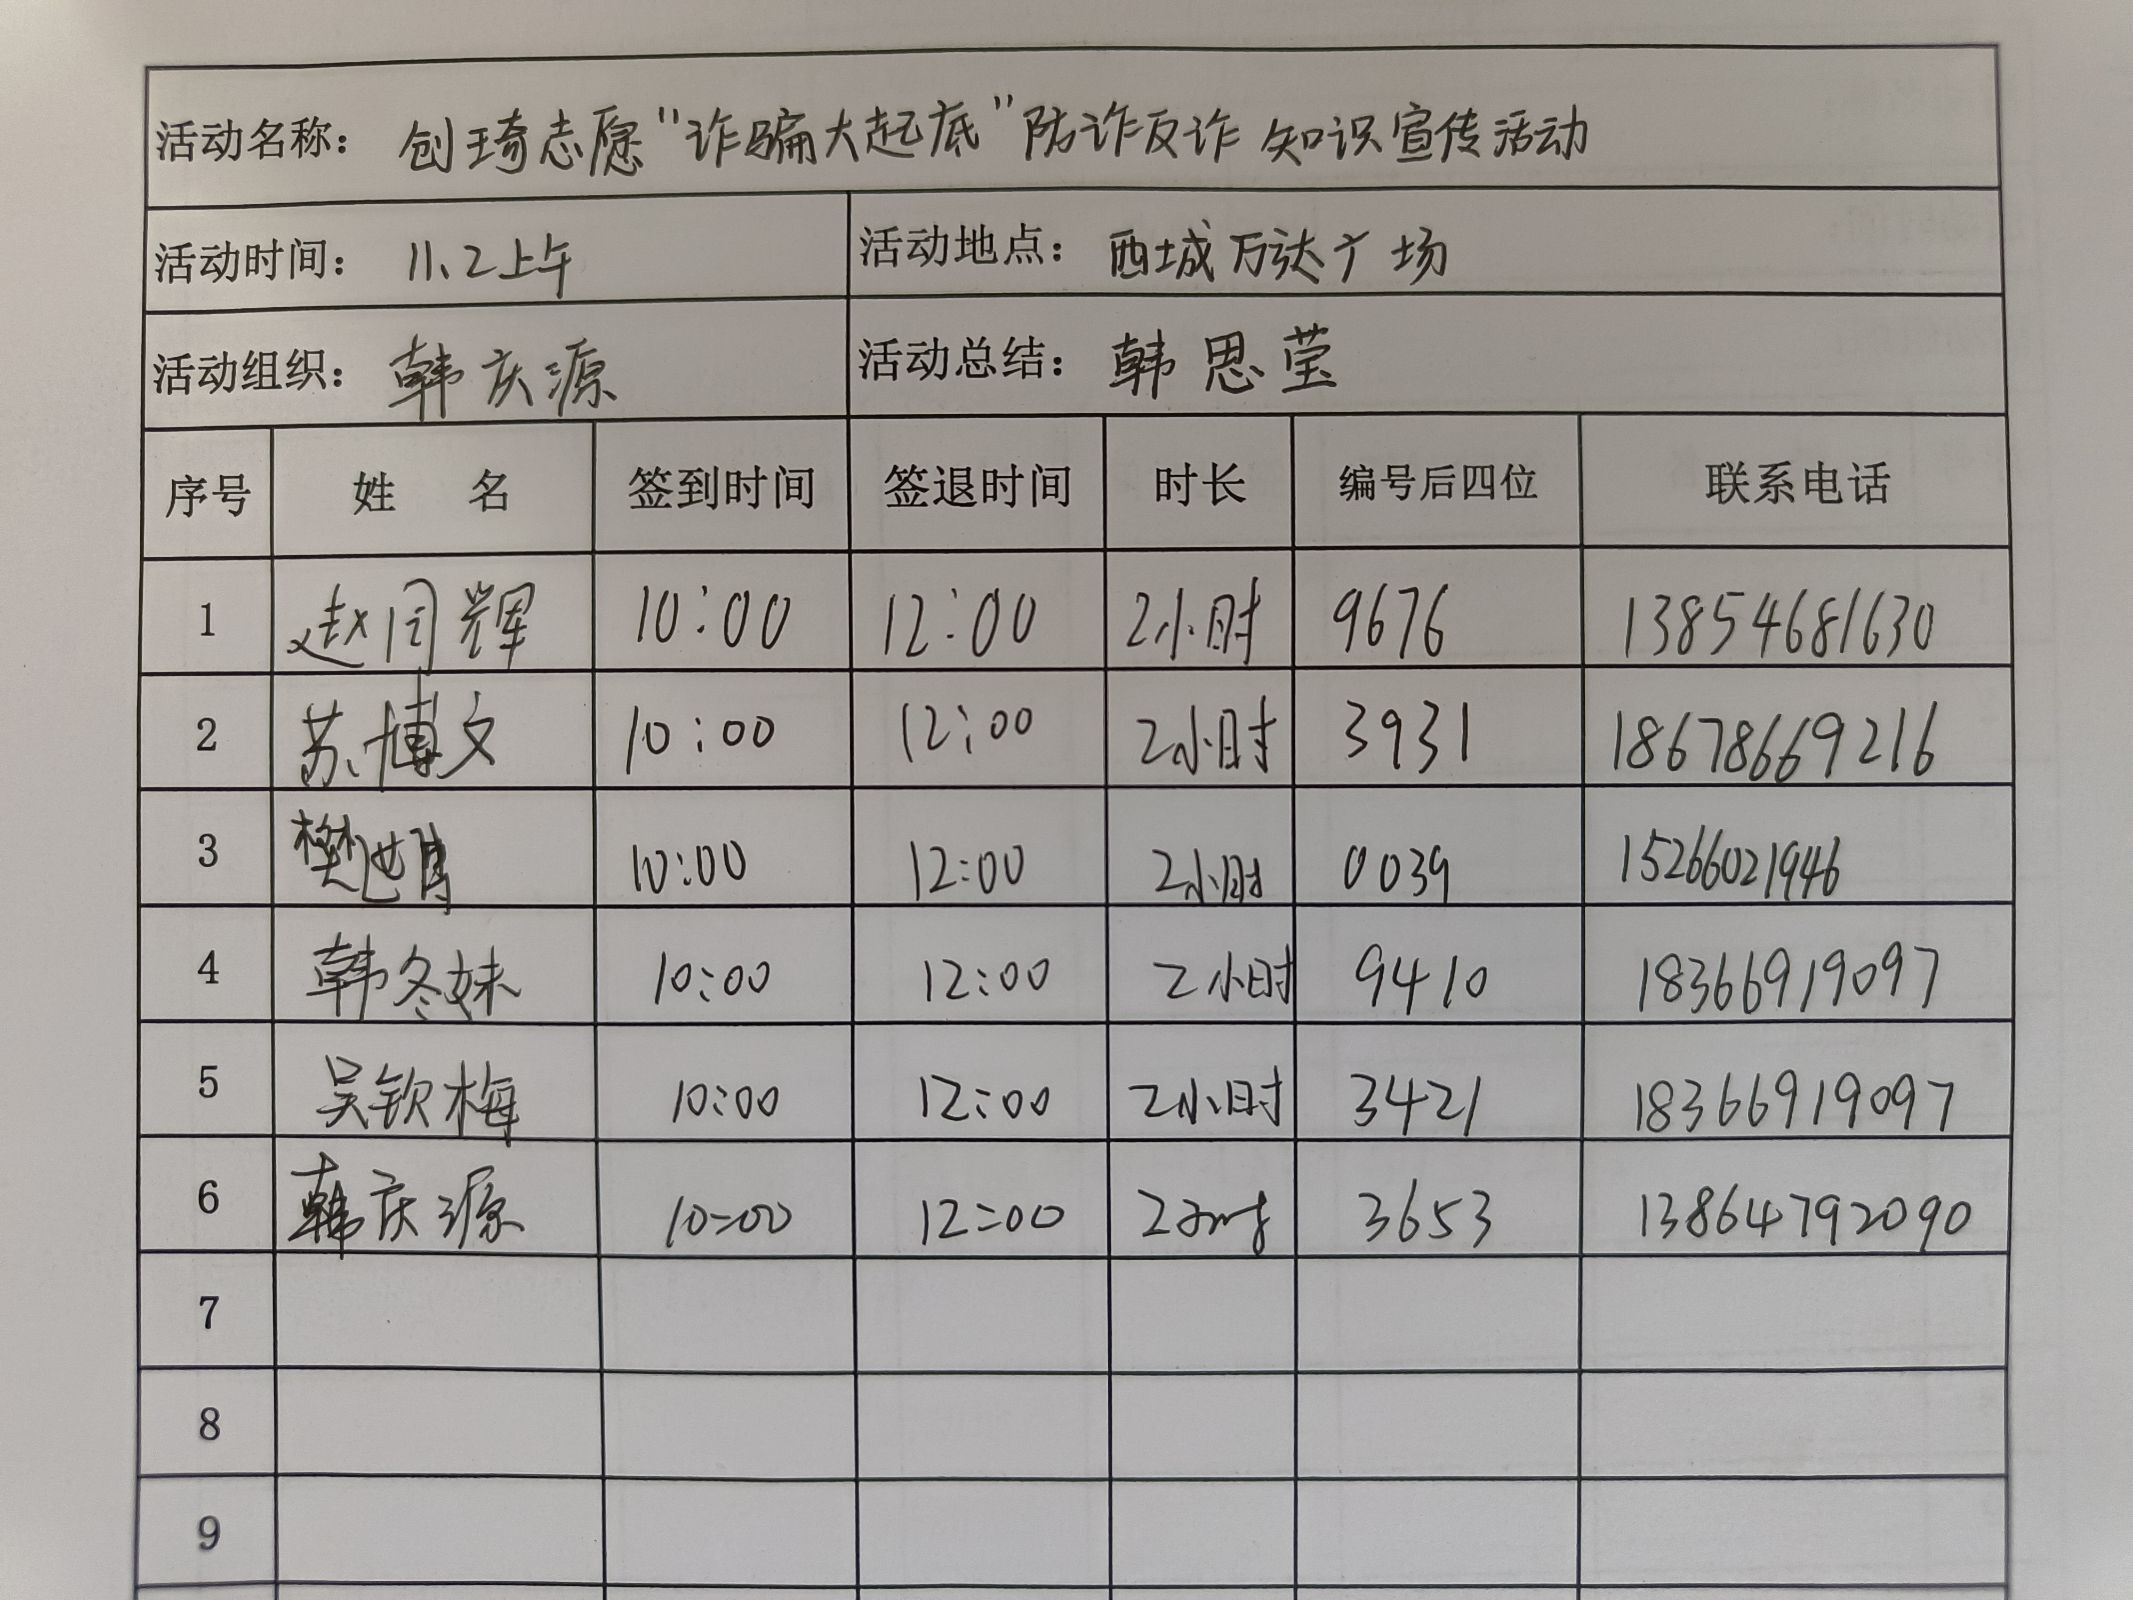 活动名称：创琦志愿"诈骗大起底"防诈反诈知识宣传活动
活动时间：11、2上午 活动地点：西城万达广场
活动组织：韩庆源 活动总结：韩思莹
序号 姓 名 签到时间 签退时间 时长 编号后四位 联系电话
1 赵同辉 10:00 12:00 2小时 9676 13854681630
2 苏博文 10:00 12:00 2小时 3931 18678669216
3 樊 10:00 12:00 2小时 0039 15266021946
4 韩冬妹 10:00 12:00 2小时 9410 18366919097
5 吴钦梅 10:00 12:00 2小时 3421 18366919097
6 韩庆源 10:00 12:00 2小时 3653 13864792090
7
8
9